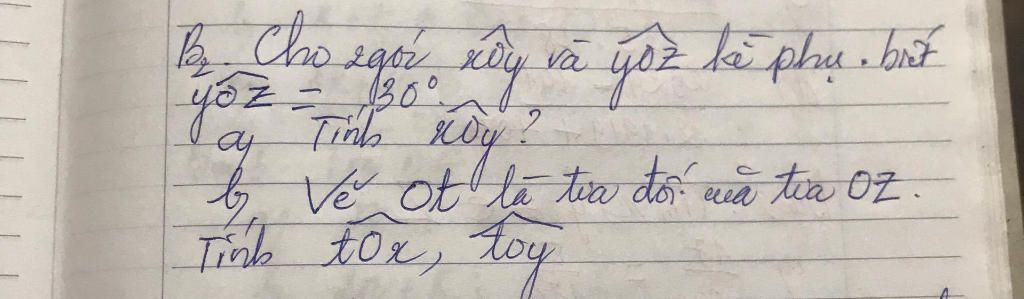 B₂. Cho 2 góc xÔy và yÔz kề phụ. biết
yÔz = 30°.
a, Tính xÔy?
b, Vẽ Ot là tia đối của tia Oz.
Tính tÔx, tÔy